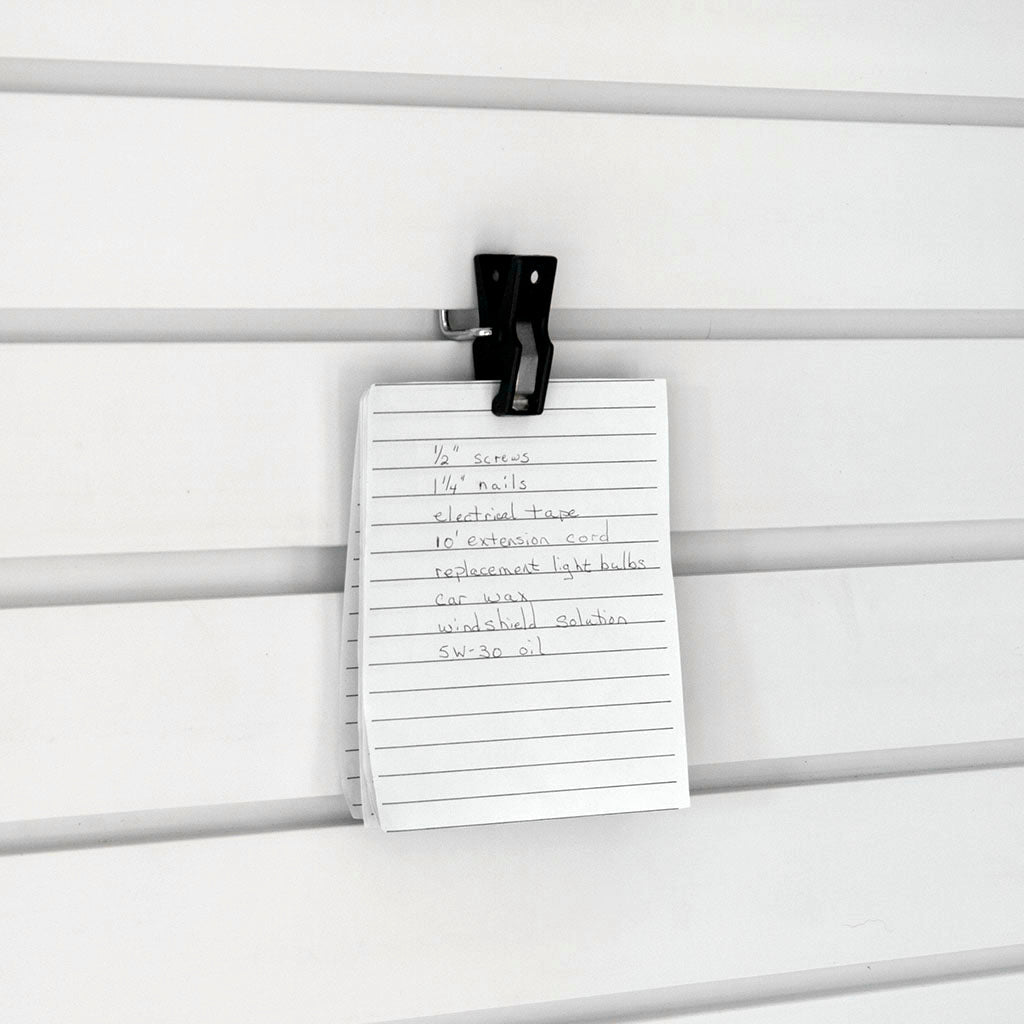 1/2" screws
1 1/4" nails
electrical tape
10' extension cord
replacement light bulbs
car wax
windshield solution
5W-30 oil